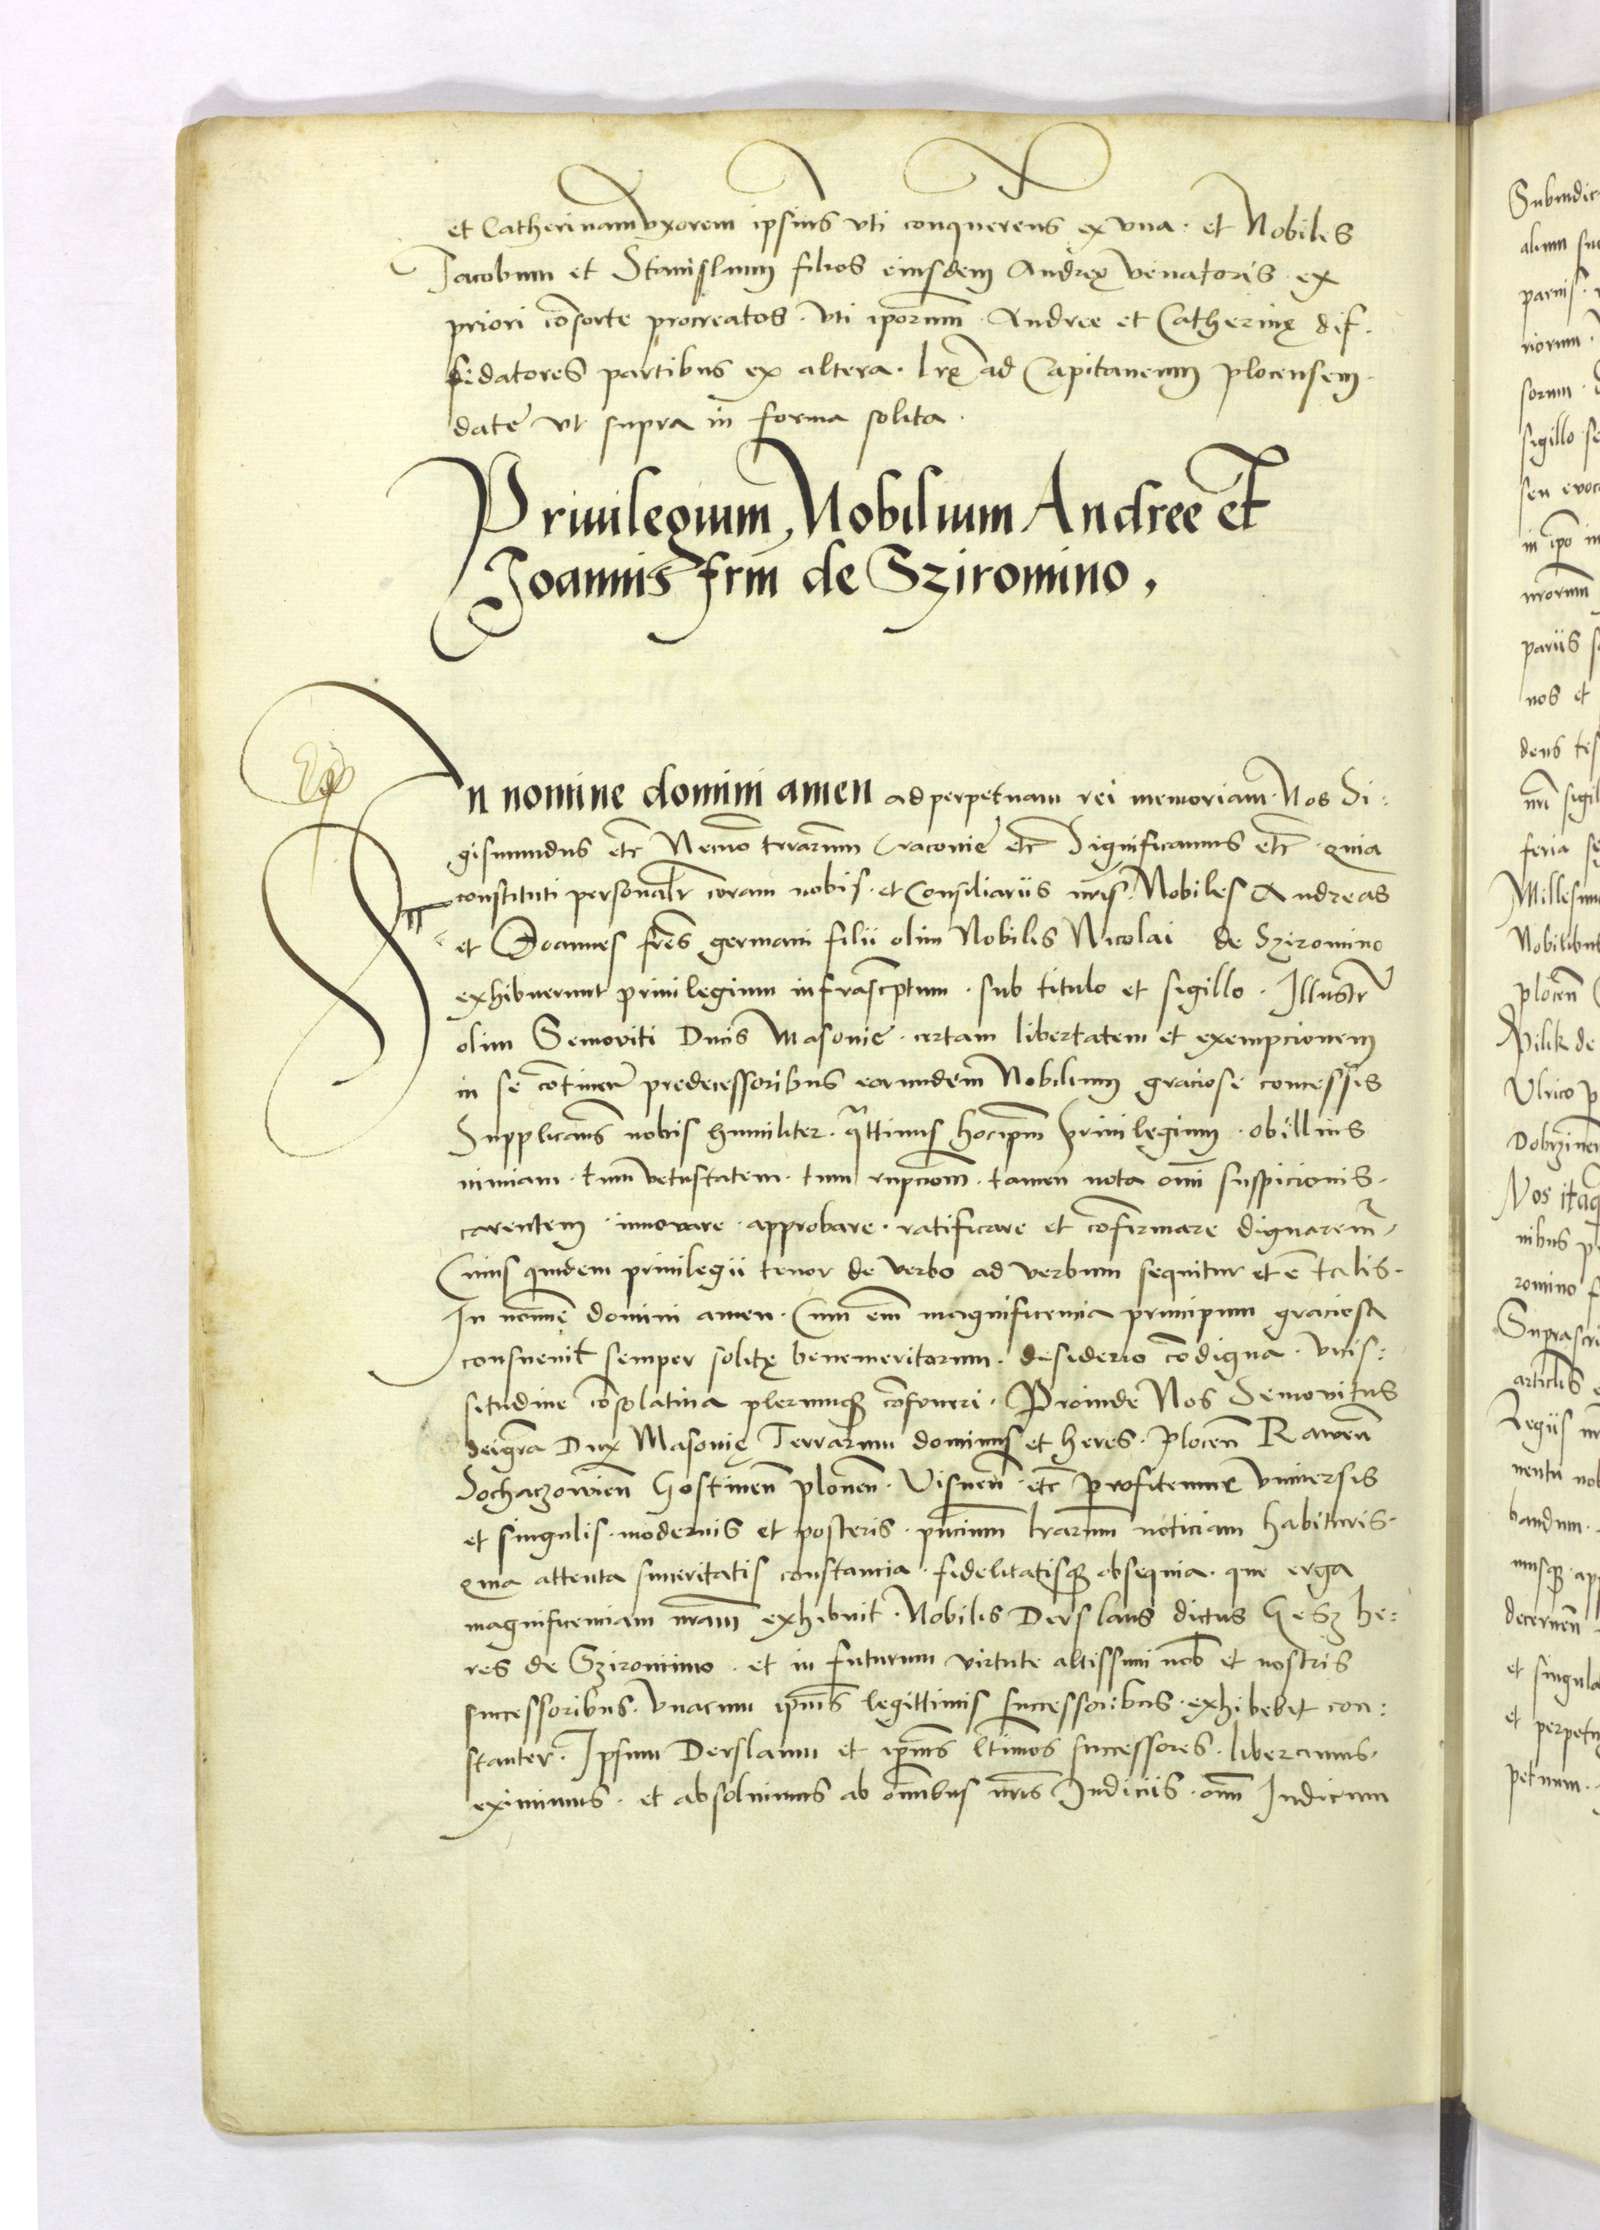 et Catherinam vxorem ipsius vti conquerens ex vna · et Nobiles
Jacobum et Stanislaum filios eiusdem Andreę venatoris ex
priori cōsorte procreatos · vti ip̄orum · Andree et Catherinę dif·
fidatores partibus ex altera · lr̄ę ad Capitaneum plocensem ·
date vt supra in forma solita ·
Priuilegium Nobilium Andree et
Joannis frm̄ de Sziromino,
In nomine domini amen ad perpetuam rei memoriam · Nos Si:
gismundus etc̄ Necnō trrarum Cracouie etc̄ Significamus etc̄ · quia
constituti personalr̄ coram nobis · et Consiliariis nr̄is · Nobiles Andreas
et Joannes frēs germani filii olim Nobilis Nicolai de Sziromino
exhibuerunt priuilegium infrascptum · sub titulo et sigillo · Illustr̄
olim Semoviti Ducis Masovie · certam libertatem et exempcionem
in se cōtinen̄ predecessoribus eorundem Nobilium graciose concessis
Supplican̄s nobis humiliter · q̄ttinus hoc ip̄m priuilegium · ob illius
nimiam · tum vetustatem · tum rupciōm · tamen nota om̄i suspicionis ·
carentem · innovare · approbare · ratificare et cōfirmare dignarem̄
Cuius quidem priuilegii tenor de verbo ad verbum sequitur et ē talis ·
In nom̄e domini amen · Cum em̄ magnificencia principum graciosa
consuevit semper solitę benemeritorum · desiderio cōdigna · vicis:
situdine cōsolativa plerumq3 cōfoueri · Proinde Nos Semovitus
dei gr̄a Dux Masovię Terrarum dominus et heres · Plocen̄ Rawen̄
Sochaczowien̄ Gostinen̄ plonen̄ · Visnen̄ · etc̄ profitemur vniversis
et singulis · modernis et posteris · pn̄cium lrarum noticiam habituris ·
qua attenta sinceritatis constancia · fidelitatisq3 obsequia · que erga
magnificenciam nr̄am exhibuit · Nobilis Derslaus dictus Gesz he:
res de Sziromino · et in futurum virtute altissimi nob̄ et nostris
successoribus · vnacum ip̄ius legittimis successoribus · exhibebit con:
stanter · Ipsum Derslaum et ip̄ius ltīmos successores · liberamus ·
eximimus · et absoluimus ab om̄ibus nr̄is Judiciis · om̄ Judicum